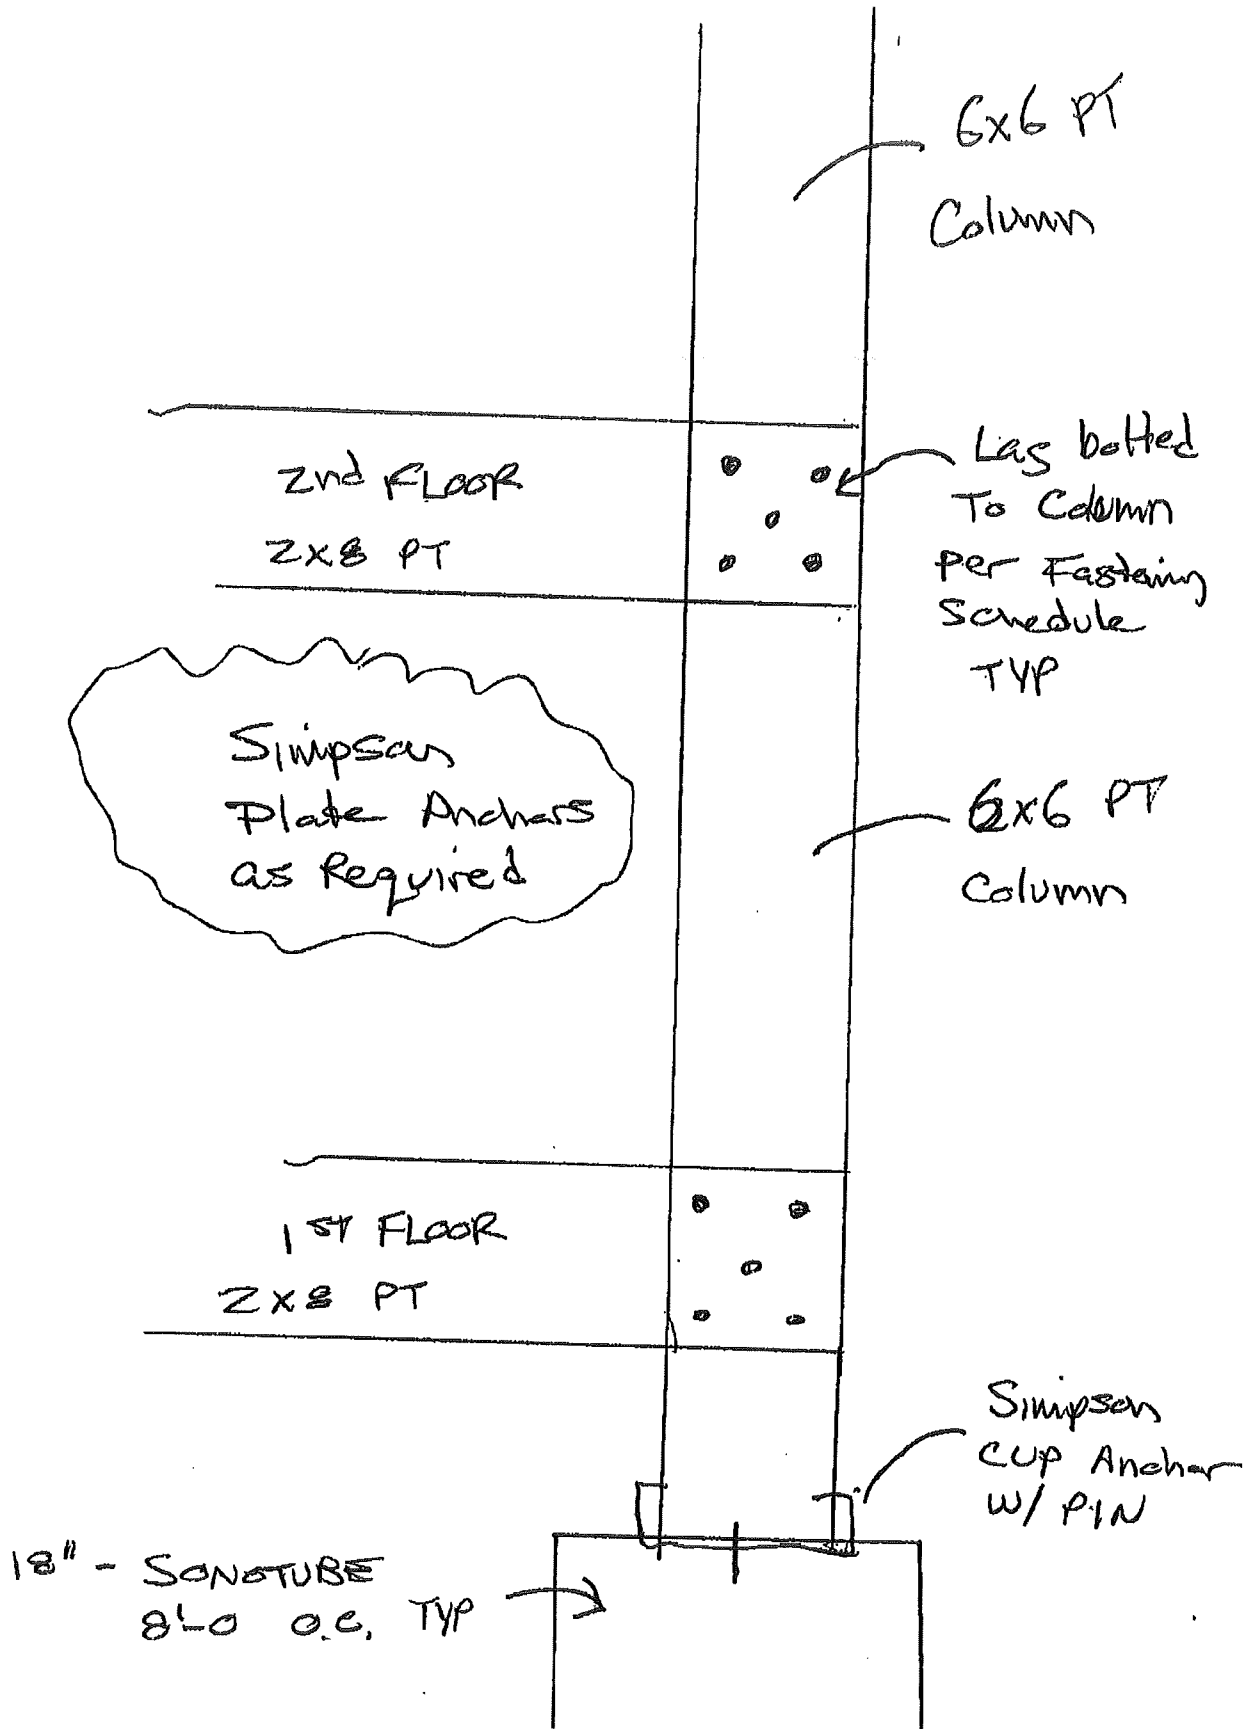 6x6 PT
Column
2nd FLOOR
2x8 PT
Lag bolted
To Column
per Fastening
Schedule
TYP
Simpson
Plate Anchors
as Required
6x6 PT
Column
1ST FLOOR
2x8 PT
Simpson
CUP Anchor
W/ PIN
18" - SONOTUBE
8'-0 O.C. TYP